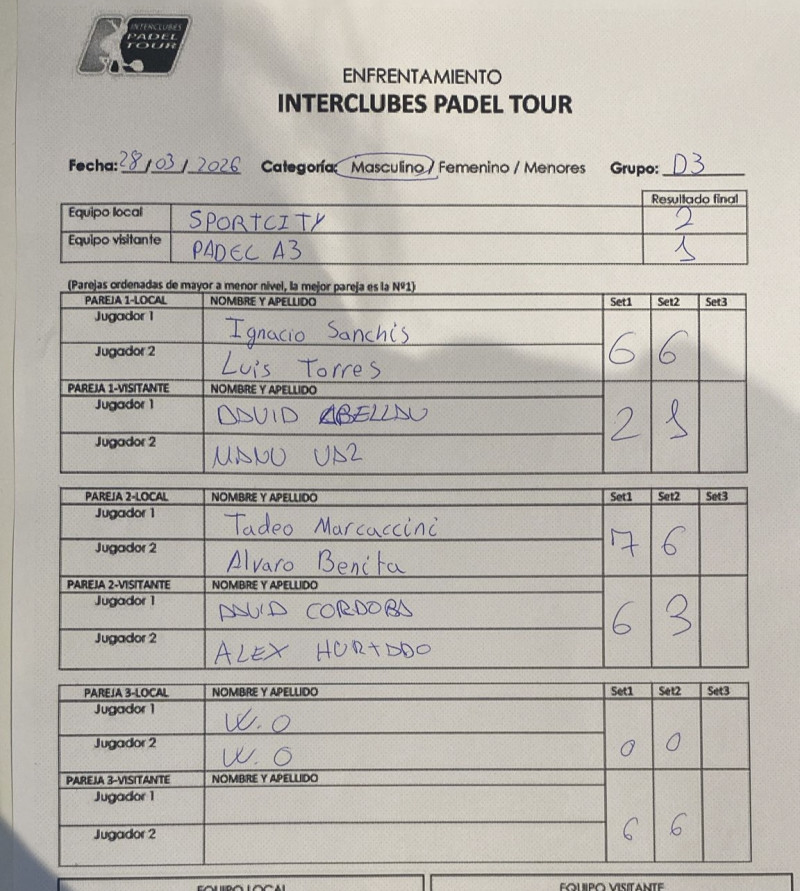 INTERCLUBES
PADEL
TOUR
ENFRENTAMIENTO
INTERCLUBES PADEL TOUR
Fecha: 28/03/2026 Categoría: Masculino / Femenino / Menores Grupo: D3
Resultado final
Equipo local SPORTCITY 2
Equipo visitante PADEL A3 1
(Parejas ordenadas de mayor a menor nivel, la mejor pareja es la Nº1)
PAREJA 1-LOCAL NOMBRE Y APELLIDO Set1 Set2 Set3
Jugador 1 Ignacio Sanchis
6 6
Jugador 2 Luis Torres
PAREJA 1-VISITANTE NOMBRE Y APELLIDO
Jugador 1 DAVID ABELLAN
2 1
Jugador 2 MANU VAZ
PAREJA 2-LOCAL NOMBRE Y APELLIDO Set1 Set2 Set3
Jugador 1 Tadeo Marcaccini
7 6
Jugador 2 Alvaro Benita
PAREJA 2-VISITANTE NOMBRE Y APELLIDO
Jugador 1 DAVID CORDOBA
6 3
Jugador 2 ALEX HURTADO
PAREJA 3-LOCAL NOMBRE Y APELLIDO Set1 Set2 Set3
Jugador 1 W.O
Jugador 2 W.O 0 0
PAREJA 3-VISITANTE NOMBRE Y APELLIDO
Jugador 1
Jugador 2 6 6
EQUIPO LOCAL EQUIPO VISITANTE